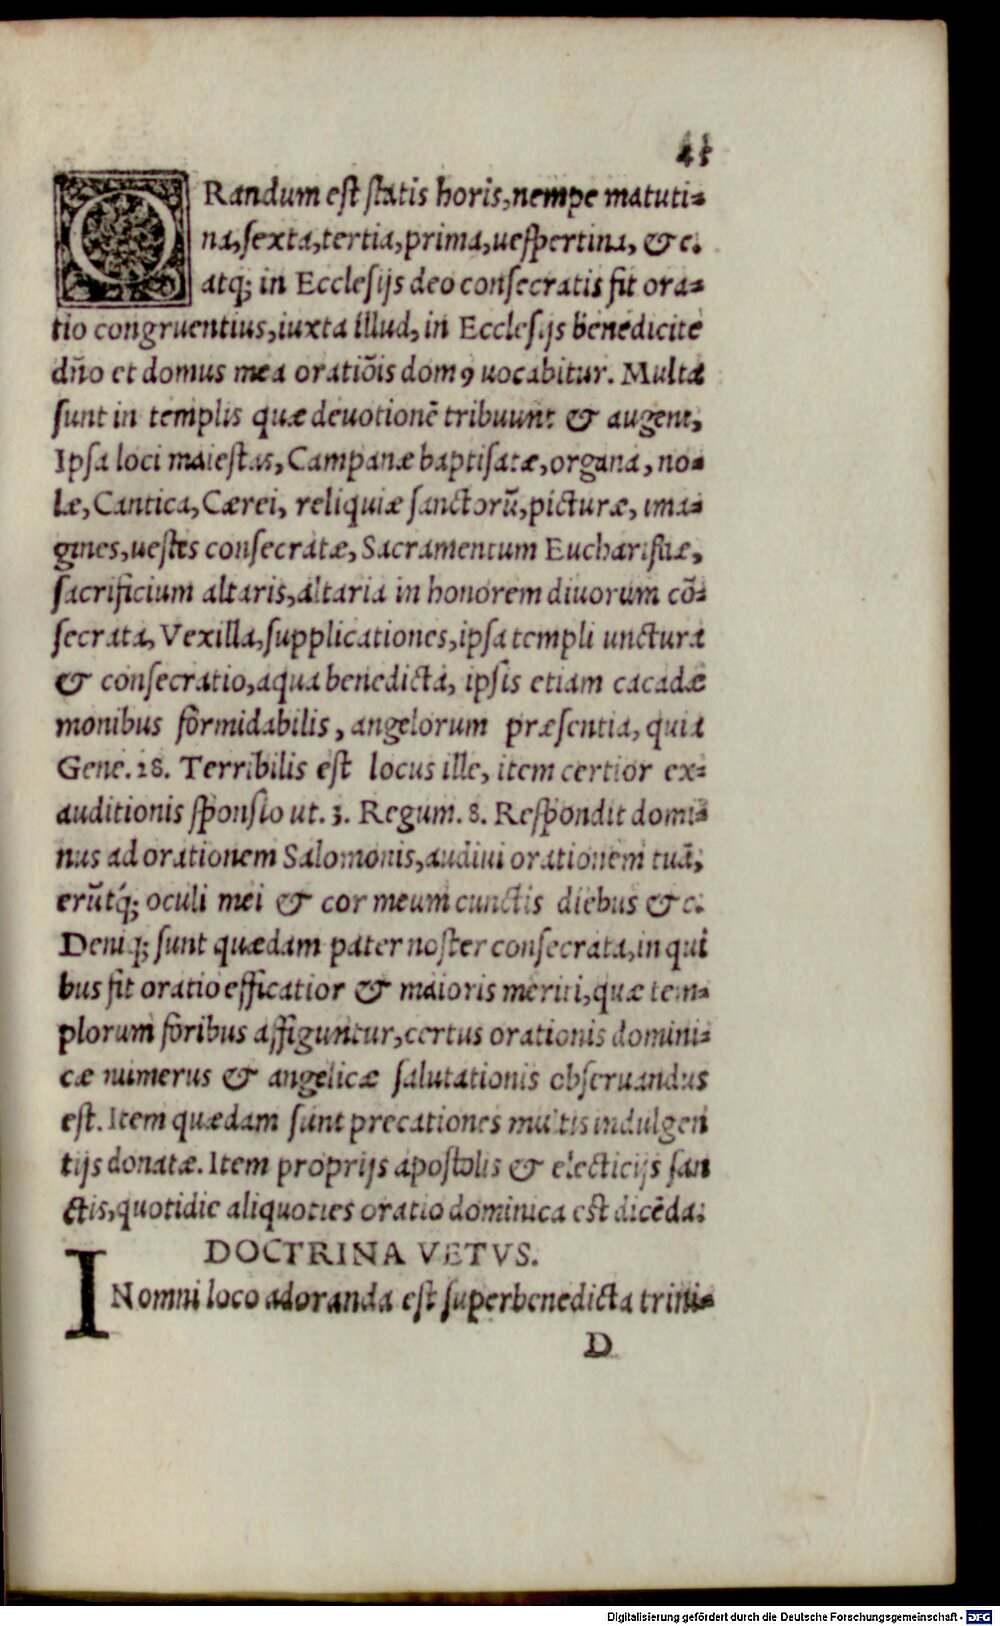 41
ORandum est statis horis, nempe matuti⸗
na, sexta, tertia, prima, uespertina, & c.
atq; in Ecclesijs deo consecratis fit ora⸗
tio congruentius, iuxta illud, in Ecclesijs benedicite
dño et domus mea oratiõis domꝰ uocabitur. Multa
sunt in templis quæ deuotionẽ tribuunt & augent,
Ipsa loci maiestas, Campanæ baptisatæ, organa, no⸗
læ, Cantica, Cærei, reliquiæ sanctorũ, picturæ, ima⸗
gines, uestes consecratæ, Sacramentum Eucharistiæ,
sacrificium altaris, altaria in honorem diuorum cõ⸗
secrata, Vexilla, supplicationes, ipsa templi unctura
& consecratio, aqua benedicta, ipsis etiam cacadæ
monibus formidabilis, angelorum præsentia, quia
Gene. 28. Terribilis est locus ille, item certior ex⸗
auditionis sponsio ut. 3. Regum. 8. Respondit domi⸗
nus ad orationem Salomonis, audiui orationem tuã,
erũtq́; oculi mei & cor meum cunctis diebus & c.
Deniq; sunt quædam pater noster consecrata, in qui
bus fit oratio efficatior & maioris meriti, quæ tem⸗
plorum foribus affiguntur, certus orationis domini⸗
cæ numerus & angelicæ salutationis obseruandus
est. Item quædam sunt precationes multis indulgen
tijs donatæ. Item proprijs apostolis & electicijs san
ctis, quotidie aliquoties oratio dominica est dicẽda.
DOCTRINA VETVS.
IN omni loco adoranda est superbenedicta trini⸗
D
Digitalisierung gefördert durch die Deutsche Forschungsgemeinschaft - DFG